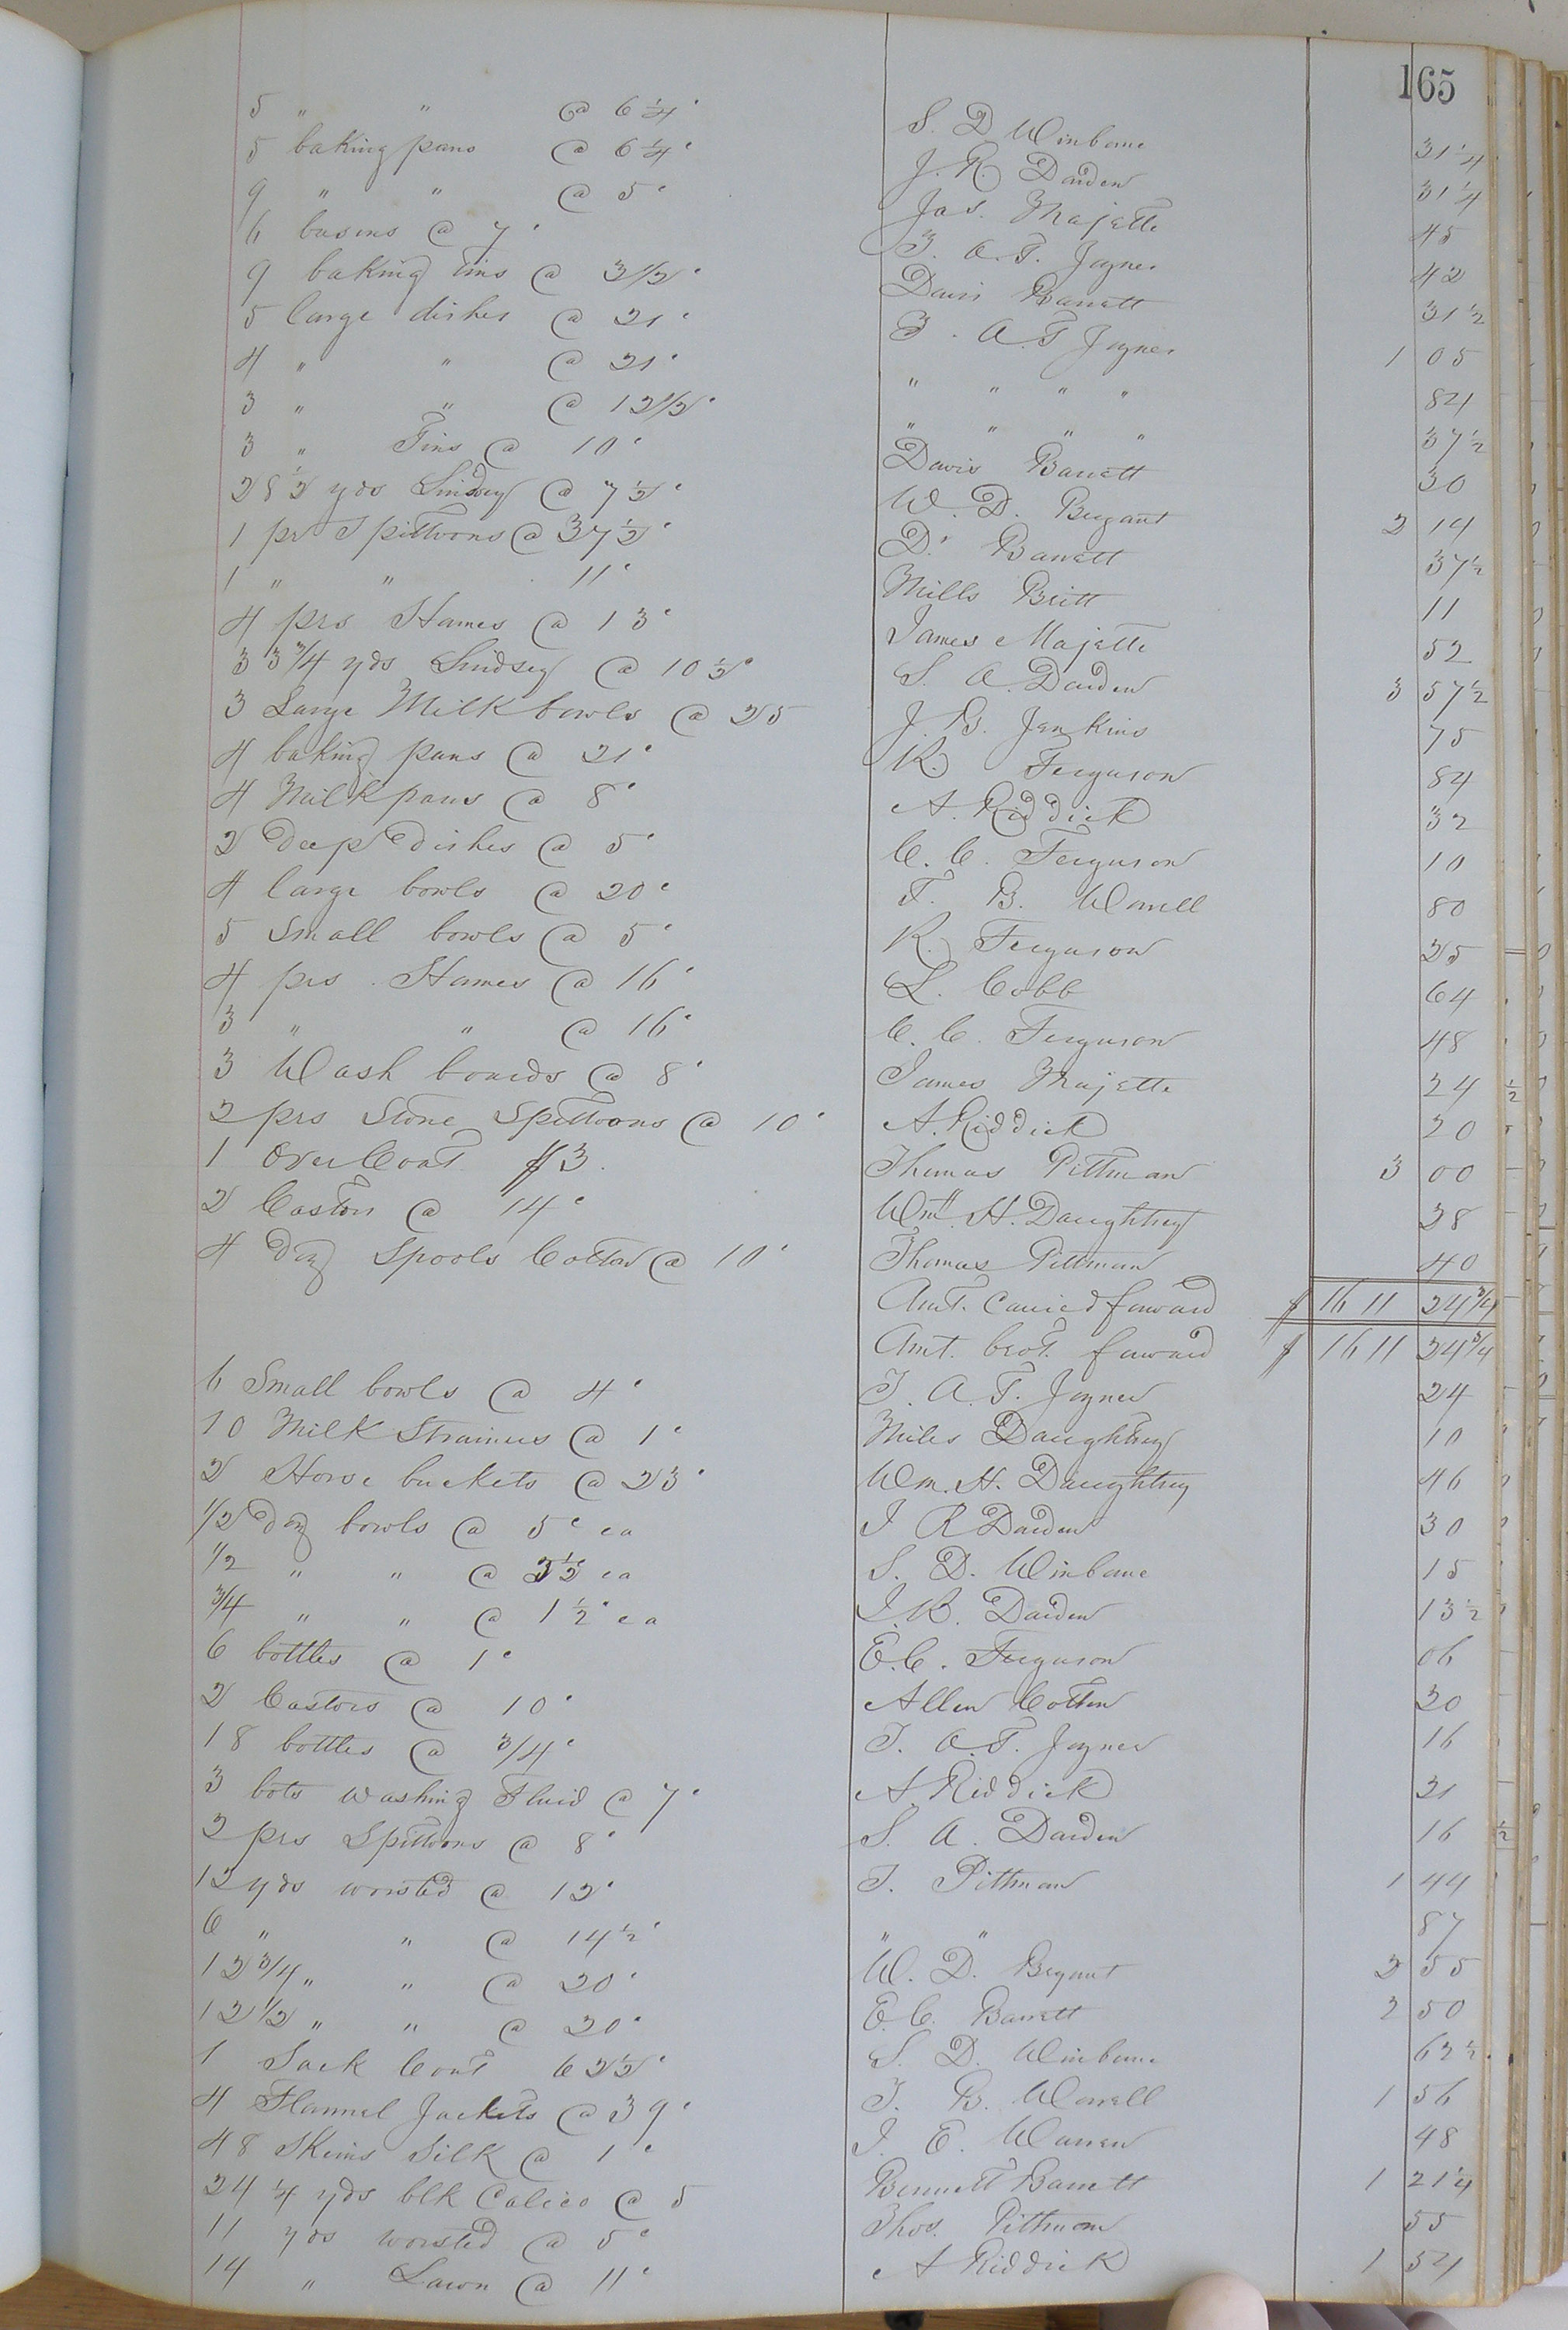 165
5 " " @ 6¼ᶜ S. D Winborne 31¼
5 baking pans @ 6¼ᶜ J. R. Darden 31¼
9 " " @ 5ᶜ Jas. Majette 45
6 basins @ 7ᶜ T. A. T. Joyner 42
9 baking tins @ 3½ᶜ Davis Barrett 31½
5 large dishes @ 21ᶜ T. A. T Joyner 1 05
4 " " @ 21ᶜ " " " " 84
3 " " @ 12½ᶜ " " " " 37½
3 " Tins @ 10ᶜ Davis Barrett 30
28½ yds Lindsey @ 7½ᶜ W. D. Bryant 2 14
1 pr Spittoons @ 37½ᶜ D. Barrett 37½
1 " " 11ᶜ Mills Britt 11
4 prs Hames @ 13ᶜ James Majette 52
33¾ yds Lindsey @ 10½ᶜ S. A. Darden 3 57½
3 Large Milk bowls @ 25 J. G. Jenkins 75
4 baking pans @ 21ᶜ R. Ferguson 84
4 Milk pans @ 8ᶜ A. Riddick 32
2 Deep Dishes @ 5ᶜ C. C. Ferguson 10
4 large bowls @ 20ᶜ T. B. Worrell 80
5 Small bowls @ 5ᶜ R. Ferguson 25
4 prs. Hames @ 16ᶜ L. Cobb 64
3 " " @ 16ᶜ C. C. Ferguson 48
3 Wash boards @ 8ᶜ James Majette 24
2 prs Stone Spittoons @ 10ᶜ A. Riddick 20
1 Over Coat $3. Thomas Pittman 3 00
2 Castors @ 14ᶜ Wm. H. Daughtrey 28
4 Doz Spools Cotton @ 10ᶜ Thomas Pittman 40
Amt. Carried forward $ 16 11 24¾
Amt. brot. forward $ 16 11 24¾
6 Small bowls @ 4ᶜ T. A. T. Joyner 24
10 Milk Strainers @ 1ᶜ Miles Daughtrey 10
2 Horse buckets @ 23ᶜ Wm. H. Daughtrey 46
1/2 Doz bowls @ 5ᶜ ea J R Darden 30
1/2 " " @ 2½ ea S. D. Winborne 15
3/4 " " @ 1½ᶜ ea J. R. Darden 13½
6 bottles @ 1ᶜ E. C. Ferguson 06
2 Castors @ 10ᶜ Allen Cotten 20
18 bottles @ 3/4ᶜ T. A. T. Joyner 16
3 bots Washing Fluid @ 7ᶜ A. Riddick 21
2 prs Spittoons @ 8ᶜ S. A. Darden 16
12 yds worsted @ 12ᶜ T. Pittman 1 44
6 " " @ 14½ᶜ " " 87
12¾ " " @ 20ᶜ W. D. Bryant 2 55
12½ " " @ 20ᶜ E. C. Barrett 2 50
1 Sack Coat 62½ᶜ S. D. Winborne 62½
4 Flannel Jackets @ 39ᶜ T. B. Worrell 1 56
48 Skeins Silk @ 1ᶜ J. E. Warren 48
24¼ yds blk Calico @ 5 Bennett Barrett 1 21¼
11 yds worsted @ 5ᶜ Thos. Pittman 55
14 " Lawn @ 11ᶜ A Riddick 1 54